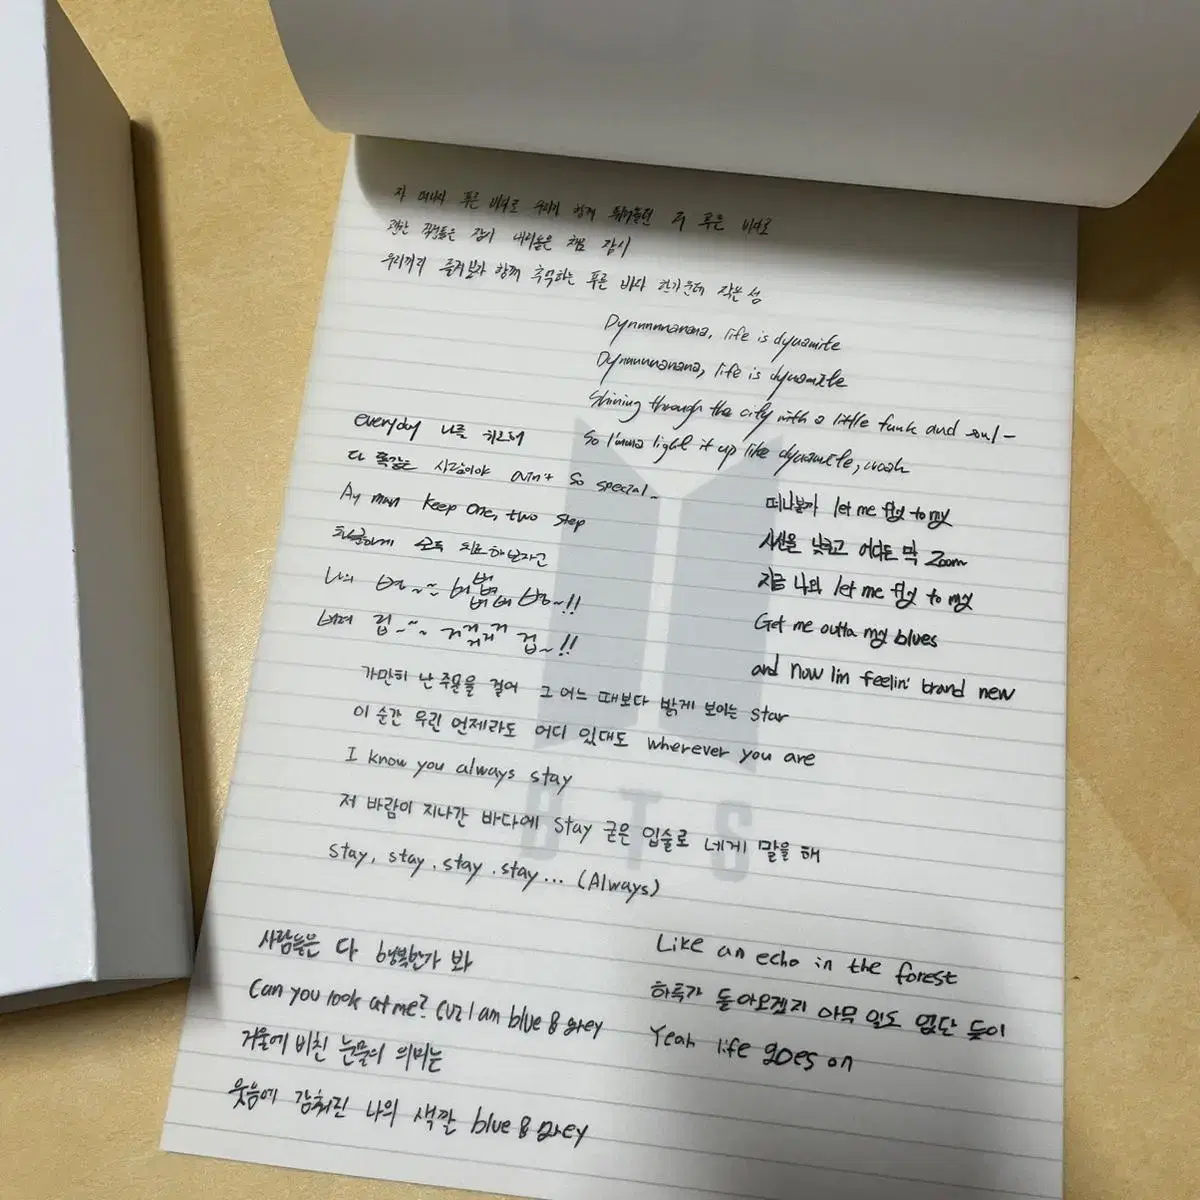 자 떠나자 푸른 바다로 우리가 함께 뛰어놀던 저 푸른 바다로
괜한 걱정들은 잠시 내려놓은 채로 잠시
우리끼리 즐겨보자 함께 추억하는 푸른 바다 한가운데 작은 섬
Dynnnnnanana, life is dynamite
Dynnnnnanana, life is dynamite
Shining through the city with a little funk and soul-
So I'mma light it up like dynamite, woah
everyday 나를
다 똑같은 시간이야 ain't so special~
Ay man keep one, two step
차분하게 모두 치료해보자고
나의 병~~~ 버벙벙벙벙 병~!!
버려 겁~~~ 거겁겁겁겁 겁~!!
떠나볼까 let me fly to my
시선을 낮추고 어디든 막 Zoom
지금 나와 let me fly to my
Get me outta my blues
and now I'm feelin' brand new
가만히 난 주문을 걸어 그 어느 때보다 밝게 보이는 star
이 순간 우린 언제라도 어디 있대도 wherever you are
I know you always stay
저 바람이 지나간 바다에 stay 굳은 입술로 네게 말을 해
stay, stay, stay, stay... (Always)
사람들은 다 행복한가 봐
Can you look at me? Cuz I am blue & grey
거울에 비친 눈물의 의미는
웃음에 감춰진 나의 색깔 blue & grey
Like an echo in the forest
하루가 돌아오겠지 아무 일도 없단 듯이
Yeah life goes on
BTS